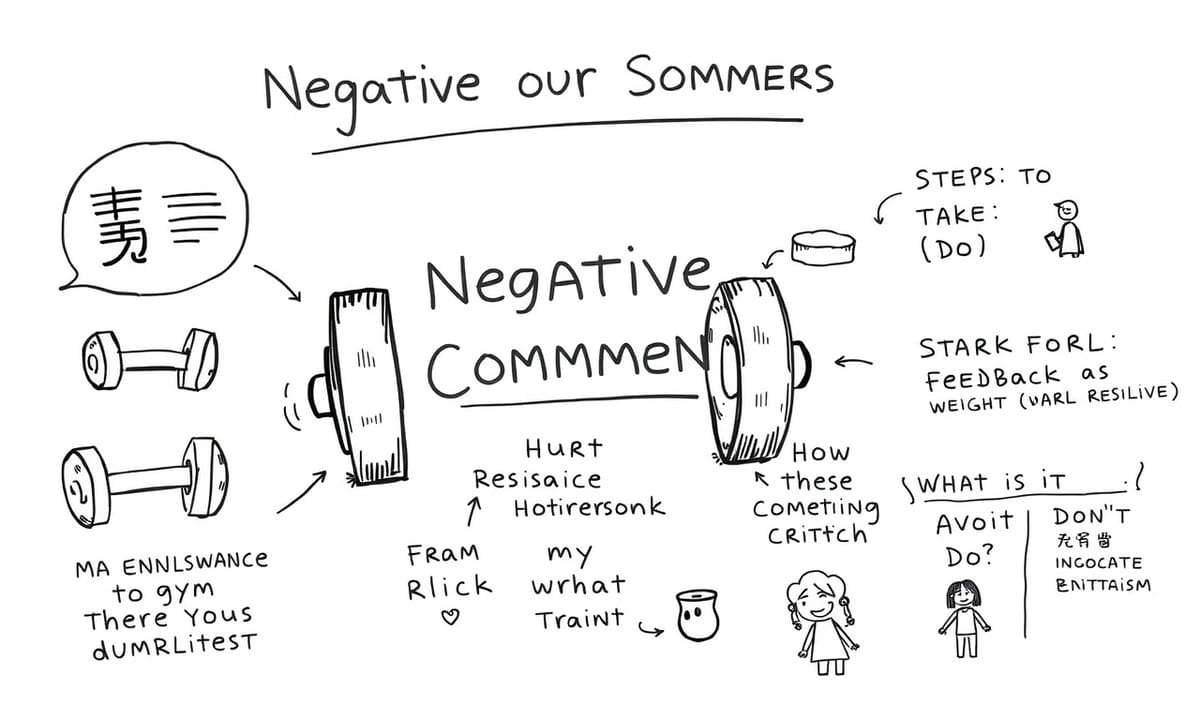 Negative our SOMMERS
STEPS: TO
TAKE:
(DO)
NegATive
COMMMeN
STARK FORL:
FeEDBacK as
WEIGHT (VARL RESILIVE)
HURt
Resisaice
Hotirersonk
FRAM
RLick
my
wrhat
Traint
How
these
COMETIING
CRITtch
WHAT iS iT
AVoiT
Do?
DON"T
INGOCATE
ENITTAiSM
MA ENNLSWANCe
to gym
There Yous
dUMRLitesT